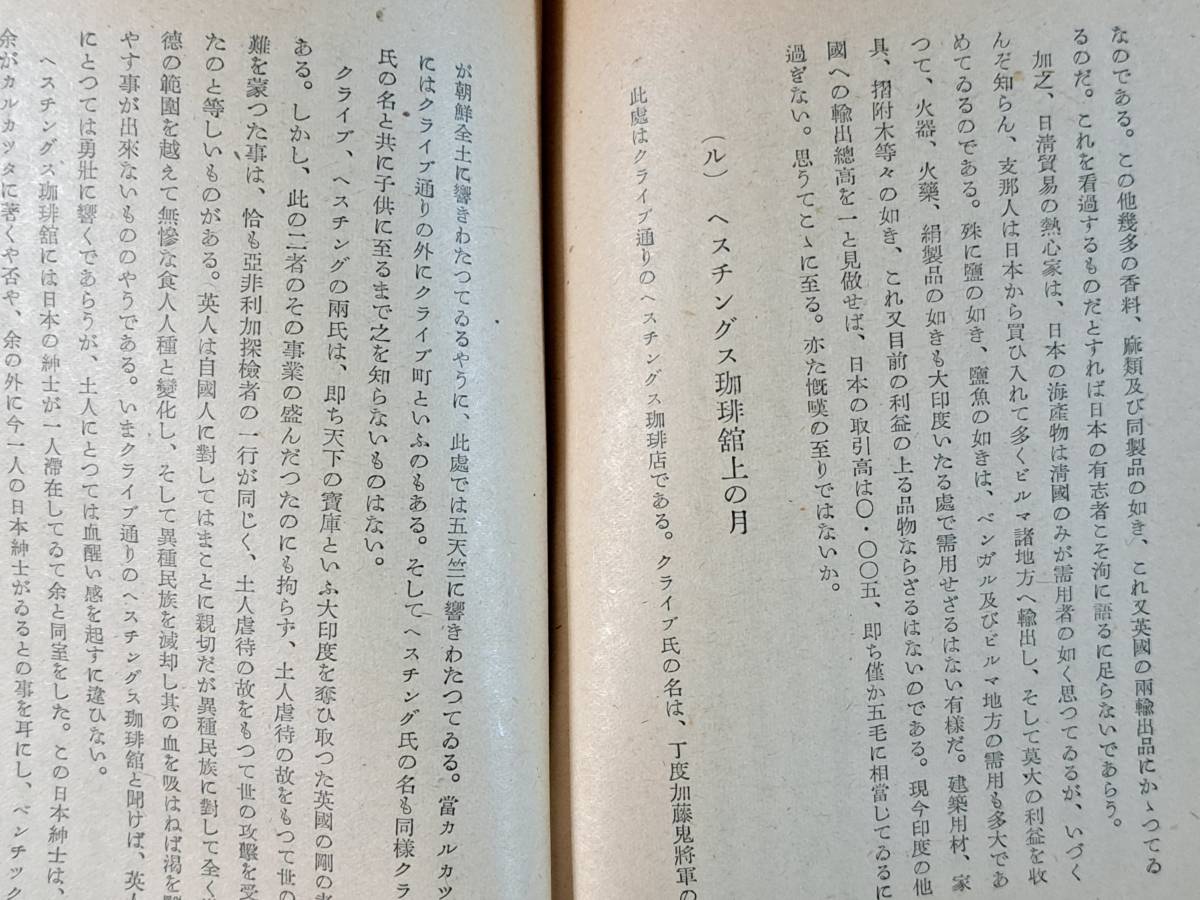 なのである。この他幾多の香料、麻類及び同製品の如き、これ又英國の兩輸出品にかゝつてゐ
るのだ。これを看過するものだとすれば日本の有志者こそ洵に語るに足らないであらう。
加之、日淸貿易の熱心家は、日本の海產物は淸國のみが需用者の如く思つてゐるが、いづく
んぞ知らん、支那人は日本から買ひ入れて多くビルマ諸地方へ輸出し、そして莫大の利益を收
めてゐるのである。殊に鹽の如き、鹽魚の如きは、ベンガル及びビルマ地方の需用も多大であ
つて、火器、火藥、絹製品の如きも大印度いたる處で需用せざるはない有樣だ。建築用材、家
具、摺附木等々の如き、これ又目前の利益の上る品物ならざるはないのである。現今印度の他
國への輸出總高を一と見做せば、日本の取引高は〇・〇〇五、即ち僅か五毛に相當してゐるに
過ぎない。思うてこゝに至る。亦た慨嘆の至りではないか。
(ル) ヘスチングス珈琲舘上の月
此處はクライブ通りのヘスチングス珈琲店である。クライブ氏の名は、丁度加藤鬼將軍の
が朝鮮全土に響きわたつてゐるやうに、此處では五天竺に響きわたつてゐる。當カルカツ
にはクライブ通りの外にクライブ町といふのもある。そしてヘスチング氏の名も同樣クラ
氏の名と共に子供に至るまで之を知らないものはない。
クライブ、ヘスチングの兩氏は、即ち天下の寶庫といふ大印度を奪ひ取つた英國の剛の者
ある。しかし、此の二者のその事業の盛んだつたのにも拘らず、土人虐待の故をもつて世の
難を蒙つた事は、恰も亞非利加探檢者の一行が同じく、土人虐待の故をもつて世の攻擊を受
たのと等しいものがある。英人は自國人に對してはまことに親切だが異種民族に對して全く
德の範圍を越えて無慘な食人人種と變化し、そして異種民族を滅却し其の血を吸はねば渇を
やす事が出來ないもののやうである。いまクライブ通りのヘスチングス珈琲舘と聞けば、英人
にとつては勇壯に響くであらうが、土人にとつては血醒い感を起すに違ひない。
ヘスチングス珈琲舘には日本の紳士が一人滯在してゐて余と同室をした。この日本紳士は、
余がカルカツタに著くや否や、余の外に今一人の日本紳士がゐるとの事を耳にし、ベンチツク